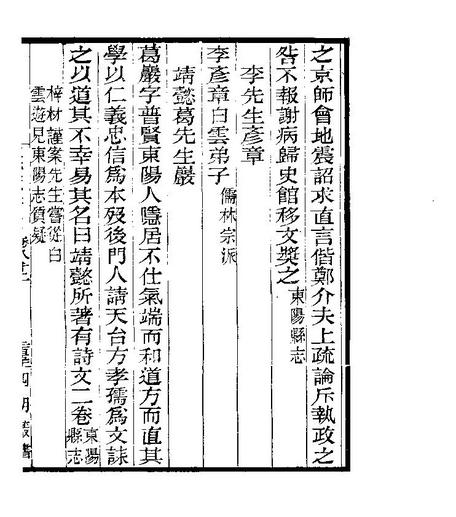 之京師會地震詔求直言偕鄭介夫上疏論斥執政之
咎不報謝病歸史館移文獎之東陽縣志
李先生彥章
李彥章白雲弟子儒林宗派
靖懿葛先生巖
葛巖字普賢東陽人隱居不仕氣端而和道方而直其
學以仁義忠信為本歿後門人請天台方孝孺為文誄
之以道其不幸易其名曰靖懿所著有詩文二卷東陽縣志
梓材謹案先生嘗從白
雲遊見東陽志質疑
四明叢書